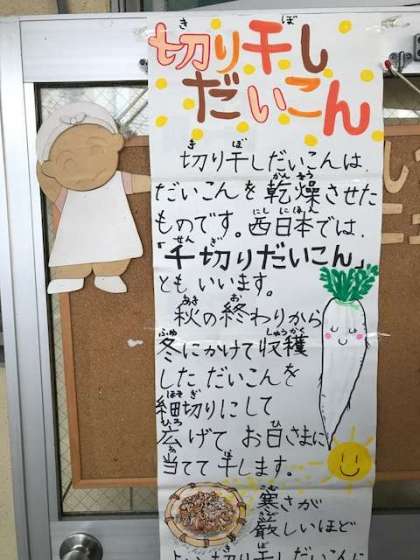 切り干し
だいこん
切り干しだいこんは
だいこんを乾燥させた
ものです。西日本では、
「千切りだいこん」
ともいいます。
秋の終わりから
冬にかけて収穫
しただいこんを
細切りにして
広げてお日さまに
当てて干します。
寒さが
厳しいほど